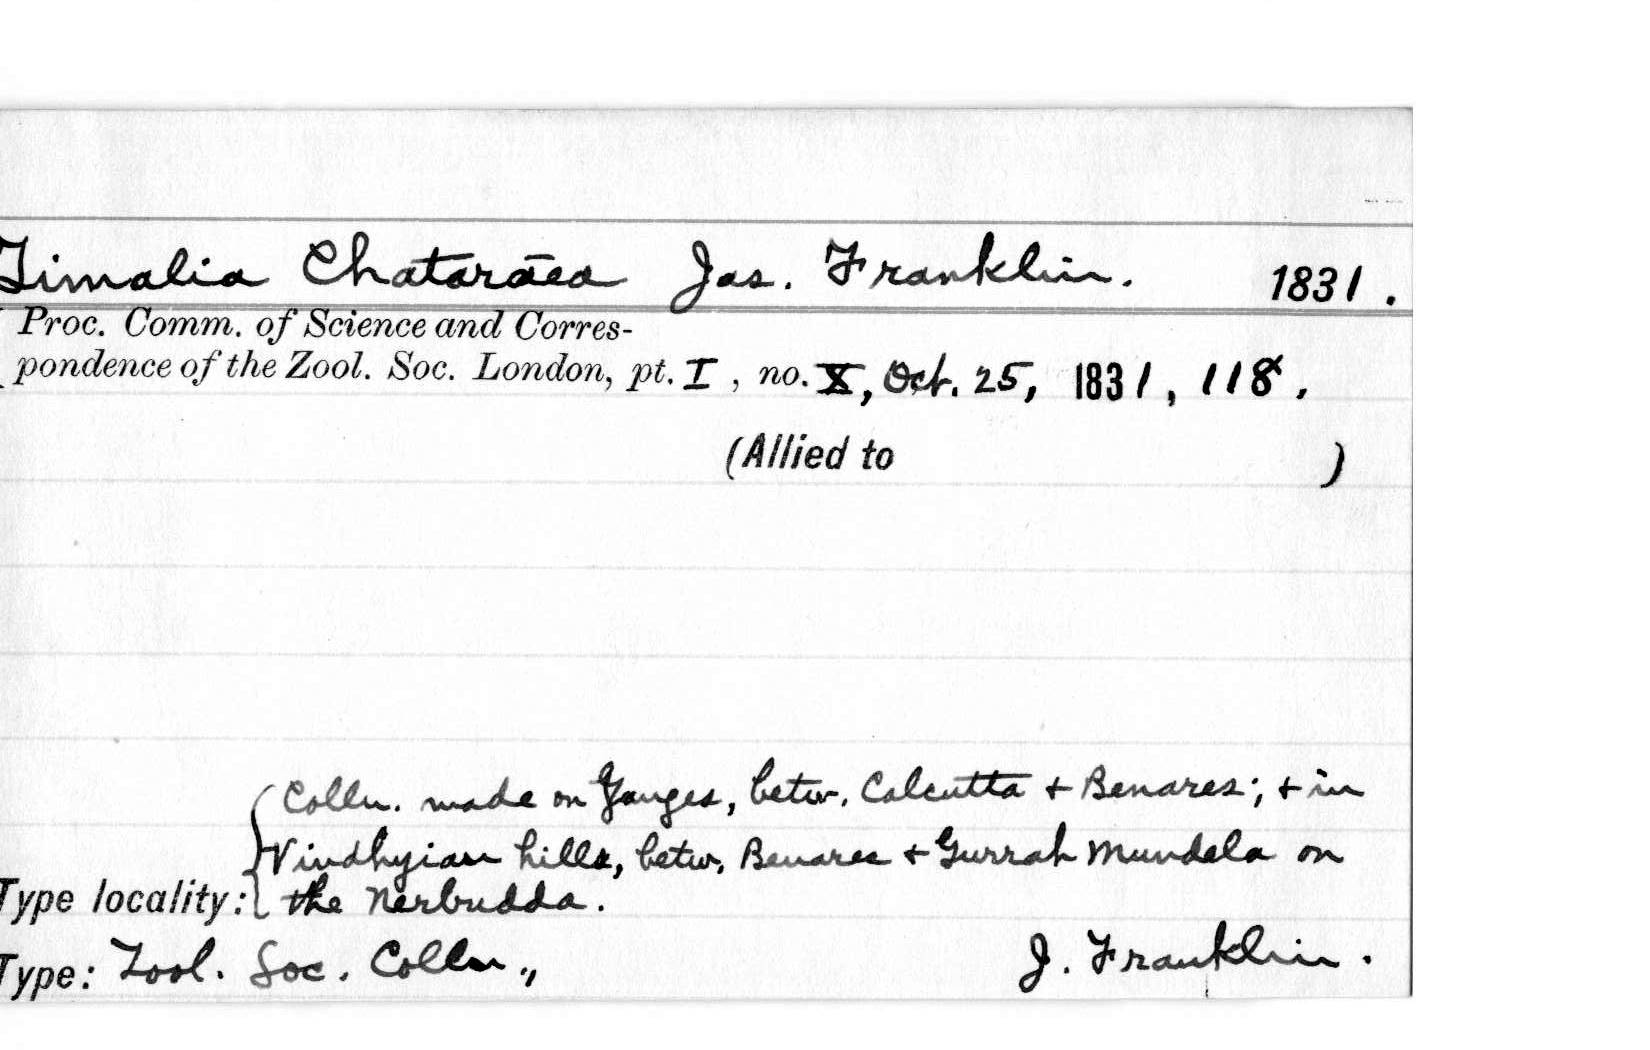 Timalia Chataræa Jas. Franklin. 1831.
Proc. Comm. of Science and Corres-
pondence of the Zool. Soc. London, pt. I, no. X, Oct. 25, 1831, 118.
(Allied to )
Colln. made on Ganges, betw. Calcutta + Benares; + in
Vindhyian hills, betw. Benares + Gurrah Mundela on
Type locality: the Nerbudda.
Type: Zool. Soc. Colln., J. Franklin.